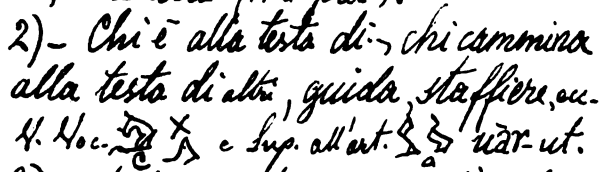 2)- Chi è alla testa di-, chi cammina
alla testa di altri, guida, staffiere, ecc.
V. Voc. e Sup. all'art. nār-ut.